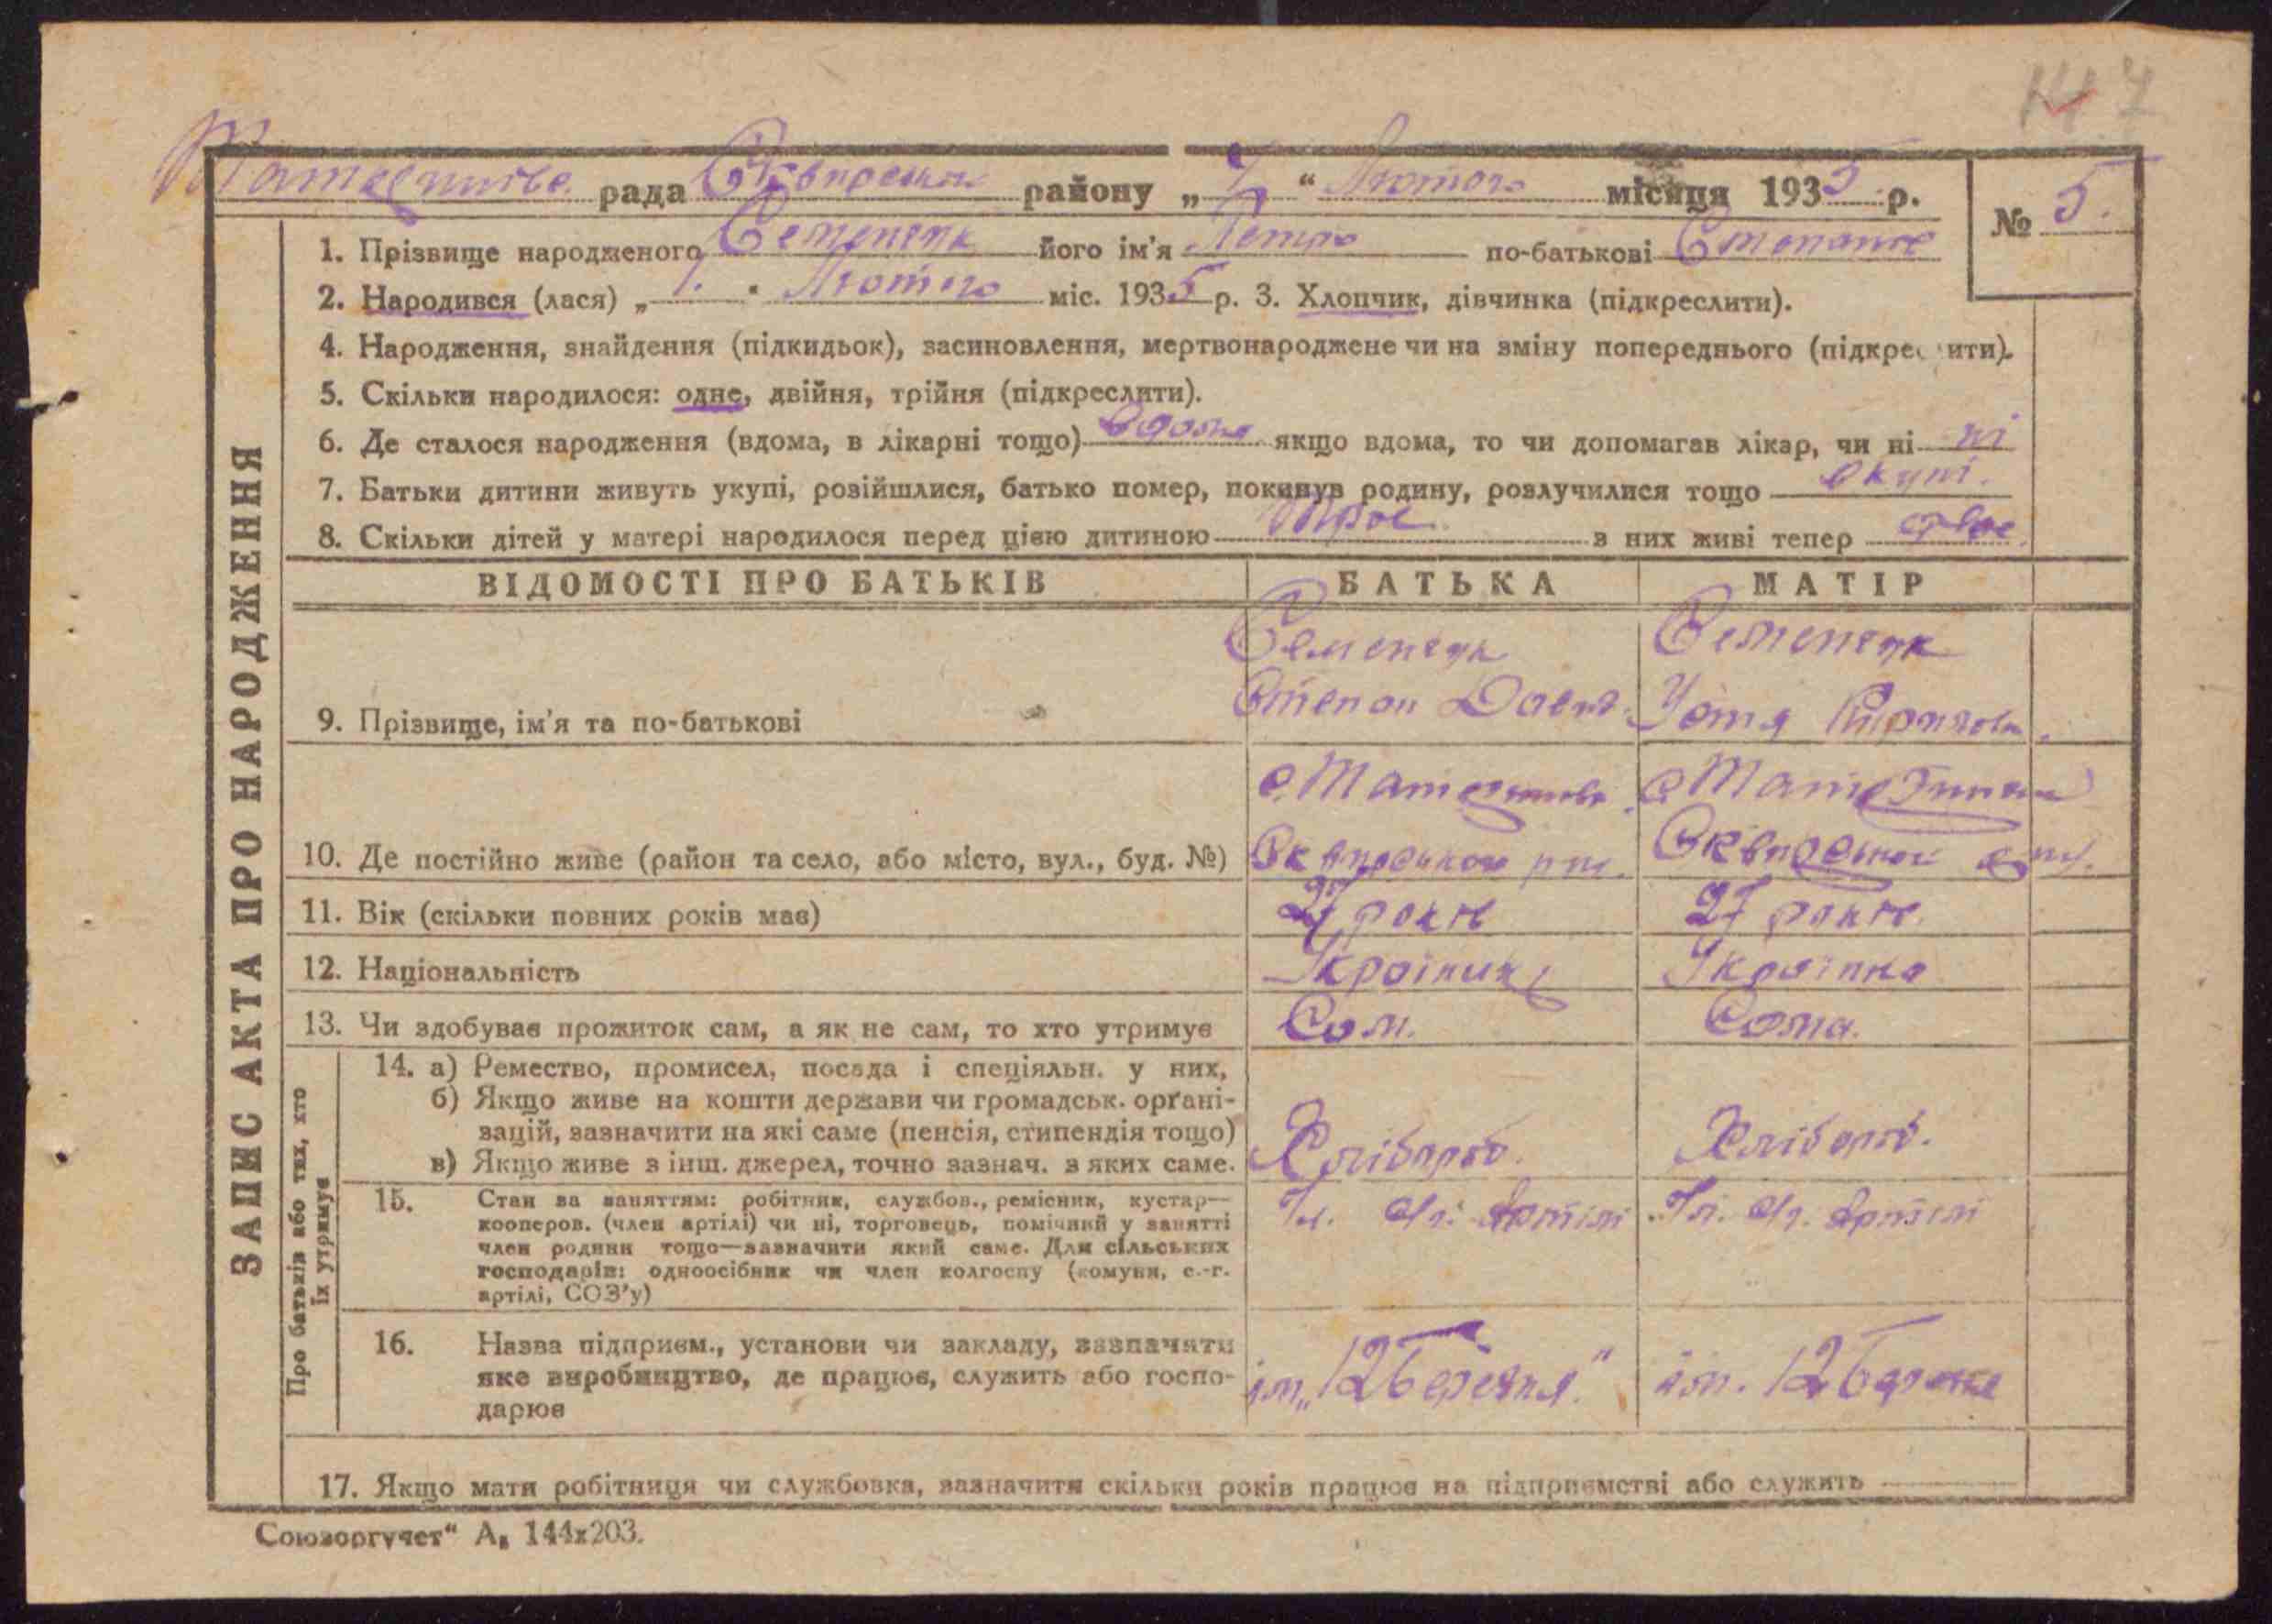 рада Сквирськ. району „ “ Лютого місяця 1935 р.
№ 5.
1. Прізвище народженого Семенюк його ім'я Петро по-батькові Степанов
2. Народився (лася) „ 1. “ Лютого міс. 1935 р. 3. Хлопчик, дівчинка (підкреслити).
4. Народження, знайдення (підкидьок), засиновлення, мертвонароджене чи на зміну попереднього (підкреслити).
5. Скільки народилося: одне, двійня, трійня (підкреслити).
6. Де сталося народження (вдома, в лікарні тощо) вдома якщо вдома, то чи допомагав лікар, чи ні ні
7. Батьки дитини живуть укупі, розійшлися, батько помер, покинув родину, розлучилися тощо вкупі.
8. Скільки дітей у матері народилося перед цією дитиною троє з них живі тепер двоє.
ЗАПИС АКТА ПРО НАРОДЖЕННЯ
ВІДОМОСТІ ПРО БАТЬКІВ БАТЬКА МАТІР
Семенюк Семенюк
9. Прізвище, ім'я та по-батькові Степан Давид. Устя
10. Де постійно живе (район та село, або місто, вул., буд. №) Сквирського Сквирської
11. Вік (скільки повних років має) 27 років 27 років.
12. Національність Українець Українка
13. Чи здобуває прожиток сам, а як не сам, то хто утримує Сам. Сама.
Про батьків або тих, хто
їх утримує
14. а) Ремество, промисел, посада і спеціяльн. у них,
б) Якщо живе на кошти держави чи громадськ. орґані-
зацій, зазначити на які саме (пенсія, стипендія тощо)
в) Якщо живе з інш. джерел, точно зазнач. з яких саме. Хлібороб. Хлібороб.
15. Стан за заняттям: робітник, службов., ремісник, кустар— Чл. с/г. Артілі Чл. с/г. Артілі
кооперов. (член артілі) чи ні, торговець, помічний у занятті
член родини тощо—зазначити який саме. Для сільських
господарів: одноосібник чи член колгоспу (комуни, с.-г.
артілі, СОЗ'у)
16. Назва підприєм., установи чи закладу, зазначати
яке виробництво, де працює, служить або госпо- ім. „12 Березня“ ім. 12 Березня
дарює
17. Якщо мати робітниця чи службовка, зазначити скільки років працює на підприємстві або служить
Союзоргучет“ А₅ 144х203.